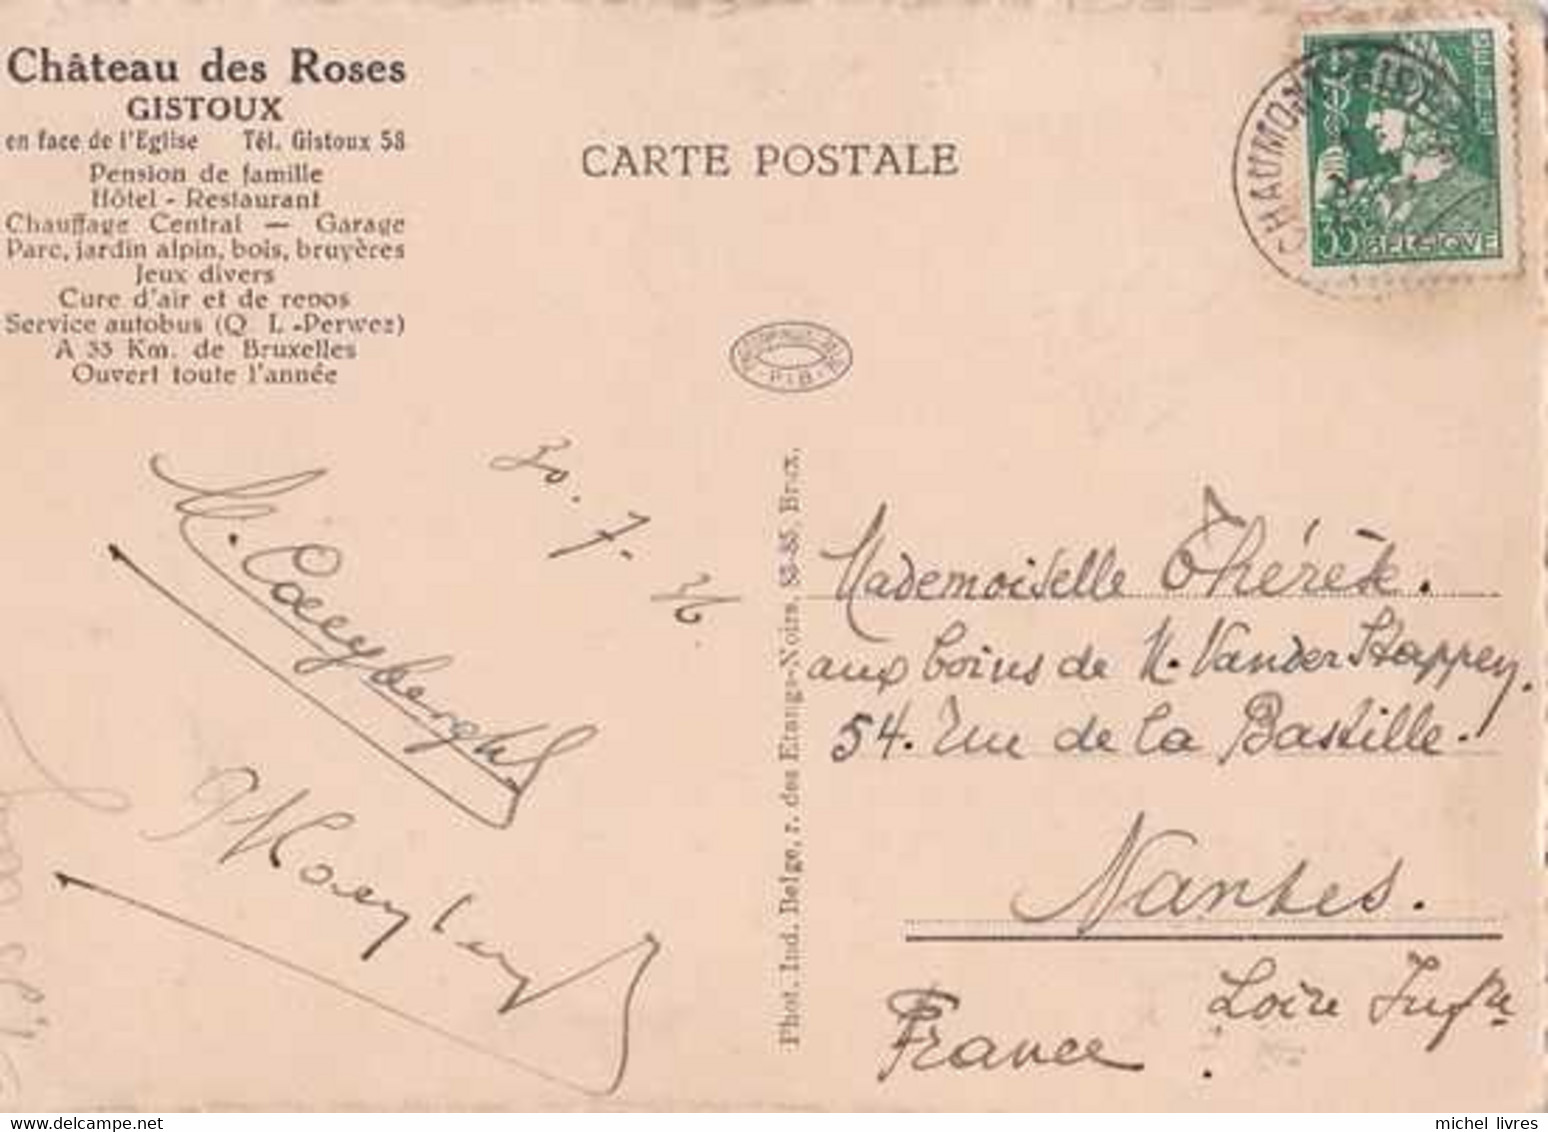 Château des Roses
GISTOUX
en face de l'Eglise Tél. Gistoux 58
Pension de famille
Hôtel - Restaurant
Chauffage Central — Garage
Parc, jardin alpin, bois, bruyères
Jeux divers
Cure d'air et de repos
Service autobus (Q. L.-Perwez)
A 33 Km. de Bruxelles
Ouvert toute l'année
CARTE POSTALE
CHAUMONT
35 BELGIQUE
30. 7. 36.
Phot. Ind. Belge, r. des Etangs-Noirs, 83-85, Brux.
Mademoiselle Thérèse.
aux soins de M. Vander Stappen.
54. rue de la Bastille.
Nantes.
Loire Infre
France.
michel_livres